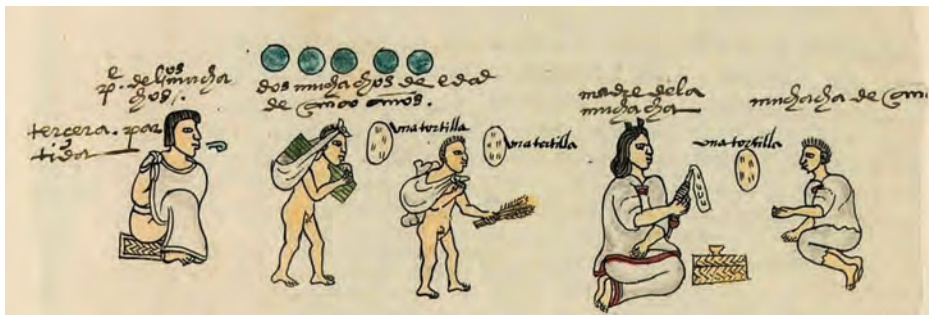 pe. delos mucha
chos/.
tercera. par
tida
dos muchachos de edad
de cinco años.
una tortilla
una tortilla
madre dela
muchacha
una tortilla
muchacha de